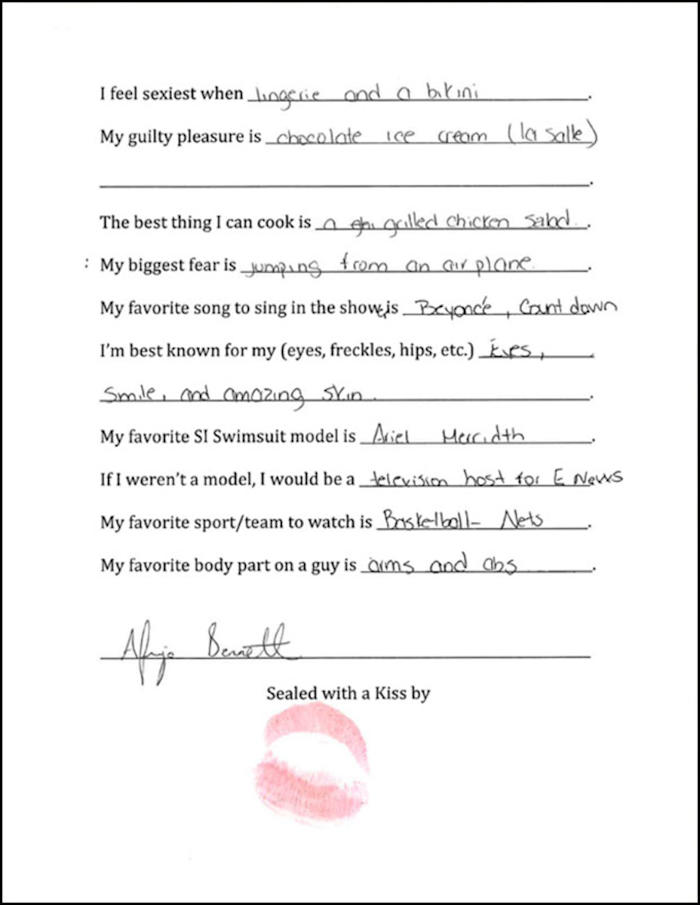 I feel sexiest when lingerie and a bikini.
My guilty pleasure is chocolate ice cream (la salle)
The best thing I can cook is a grilled chicken salad.
: My biggest fear is jumping from an air plane.
My favorite song to sing in the show,is Beyoncé, Count down
I'm best known for my (eyes, freckles, hips, etc.) Eyes,.
Smile, and amazing skin.
My favorite SI Swimsuit model is Ariel Merridth.
If I weren't a model, I would be a television host for E News
My favorite sport/team to watch is Basketball- Nets.
My favorite body part on a guy is arms and abs.
Bennett
Sealed with a Kiss by